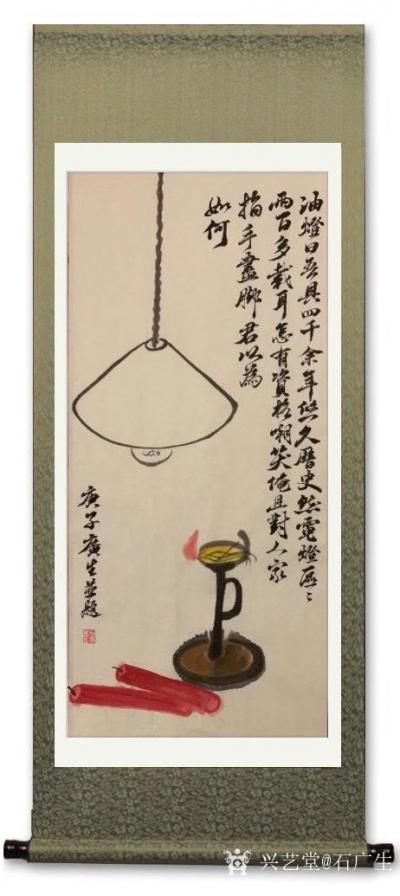 油燈曰吾具四千余年悠久曆史然電燈區〻
兩百多載耳怎有資格嘲笑俺且對人家
指手畫脚君以為
如何
庚子廣生並題
兴艺堂@石广生